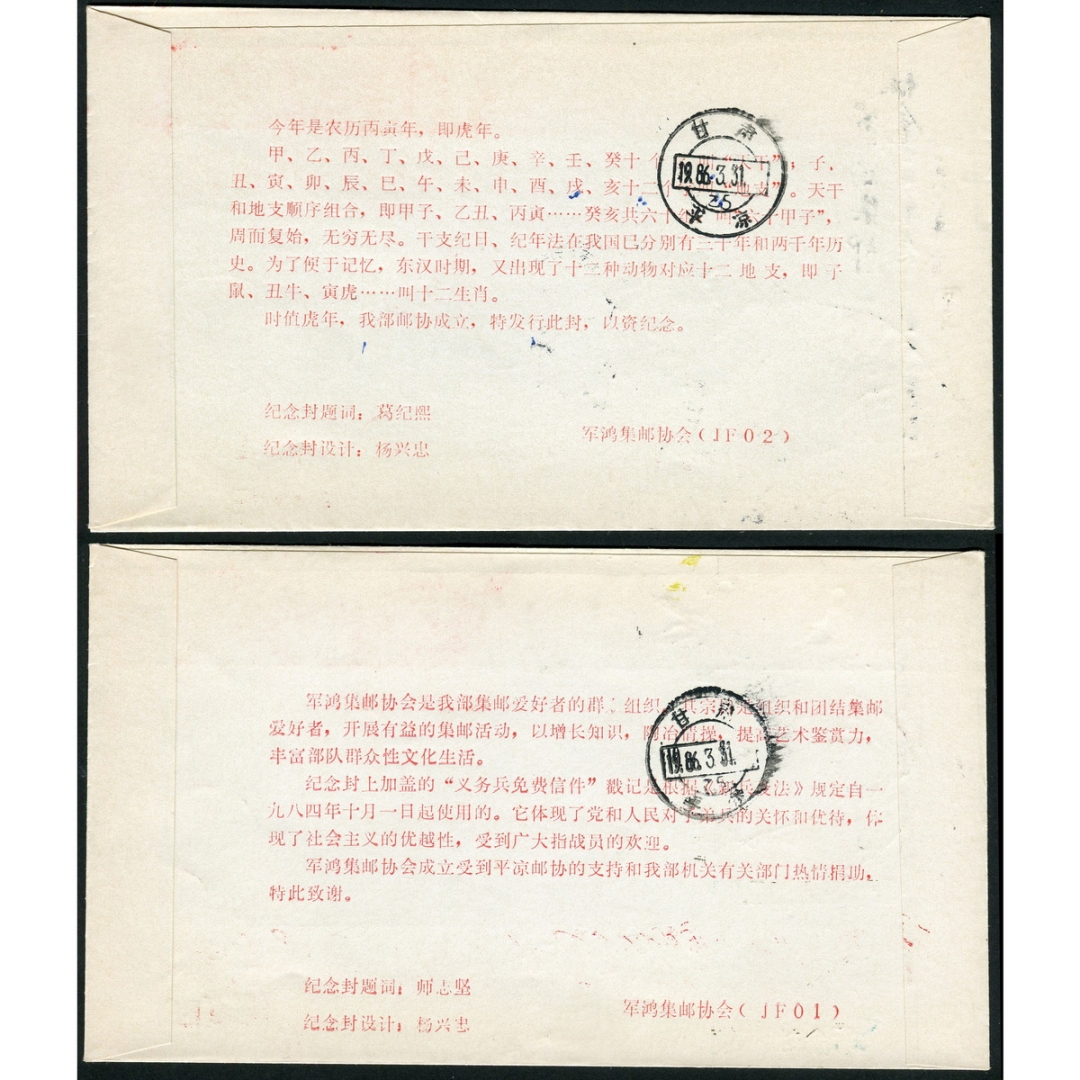 今年是农历丙寅年，即虎年。
甲、乙、丙、丁、戊、己、庚、辛、壬、癸十个
子、
丑、寅、卯、辰、巳、午、未、申、酉、戌、亥十二个
地支”。天干
和地支顺序组合，即甲子、乙丑、丙寅……癸亥共六十
甲子”，
周而复始，无穷无尽。干支纪日、纪年法在我国已分别有三千年和两千年历
史。为了便于记忆，东汉时期，又出现了十二种动物对应十二地支，即子
鼠、丑牛、寅虎……叫十二生肖。
时值虎年，我部邮协成立，特发行此封，以资纪念。
纪念封题词：葛纪熙
纪念封设计：杨兴忠
军鸿集邮协会（JF02）
甘肃
1986.3.31.
军鸿集邮协会是我部集邮爱好者的群
组织
组织和团结集邮
爱好者，开展有益的集邮活动，以增长知识，陶冶情操，提高艺术鉴赏力，
丰富部队群众性文化生活。
纪念封上加盖的“义务兵免费信件”戳记是根据
法》规定自一
九八四年十月一日起使用的。它体现了党和人民对子弟兵的关怀和优待，体
现了社会主义的优越性，受到广大指战员的欢迎。
军鸿集邮协会成立受到平凉邮协的支持和我部机关有关部门热情捐助，
特此致谢。
纪念封题词：师志坚
纪念封设计：杨兴忠
军鸿集邮协会（JF01）
甘肃
1986.3.31.